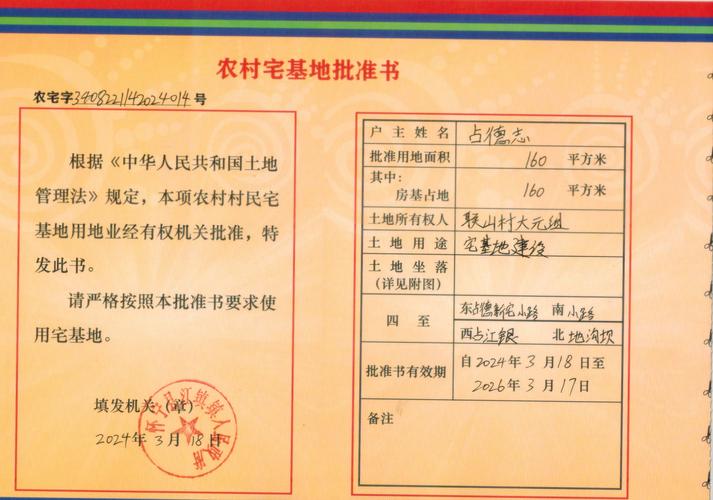 农村宅基地批准书
农宅字3408221142024014号
根据《中华人民共和国土地
管理法》规定，本项农村村民宅
基地用地业经有权机关批准，特
发此书。
请严格按照本批准书要求使
用宅基地。
填发机关（章）
2024年3月18日
怀宁县江镇镇人民政府
户主姓名 占德志
批准用地面积 160 平方米
其中：
房基占地 160 平方米
土地所有权人 联山村大元组
土地用途 宅基地建设
土地坐落
（详见附图）
四至 东占德新宅小路 南小路
西占江银 北地沟坝
批准书有效期 自2024年3月18日至
2026年3月17日
备注